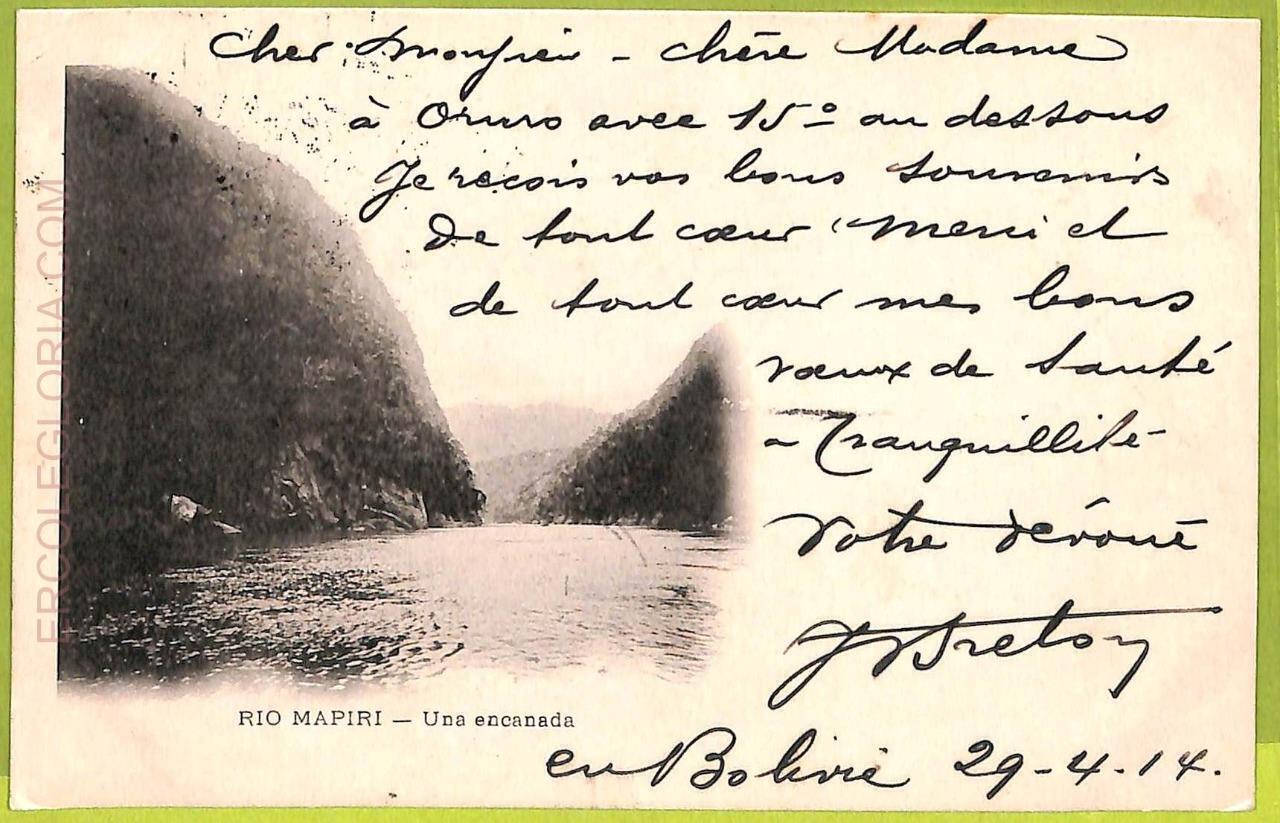 Cher Monsieur - chère Madame
à Oruro avec 15° au dessous
Je reçois vos bons souvenirs
De tout cœur "merci et
de tout cœur mes bons
vœux de santé
- Tranquillité -
Votre dévoué
Breton
en Bolivie 29-4-14.
RIO MAPIRI — Una encanada
ERCOLEGLORIA.COM